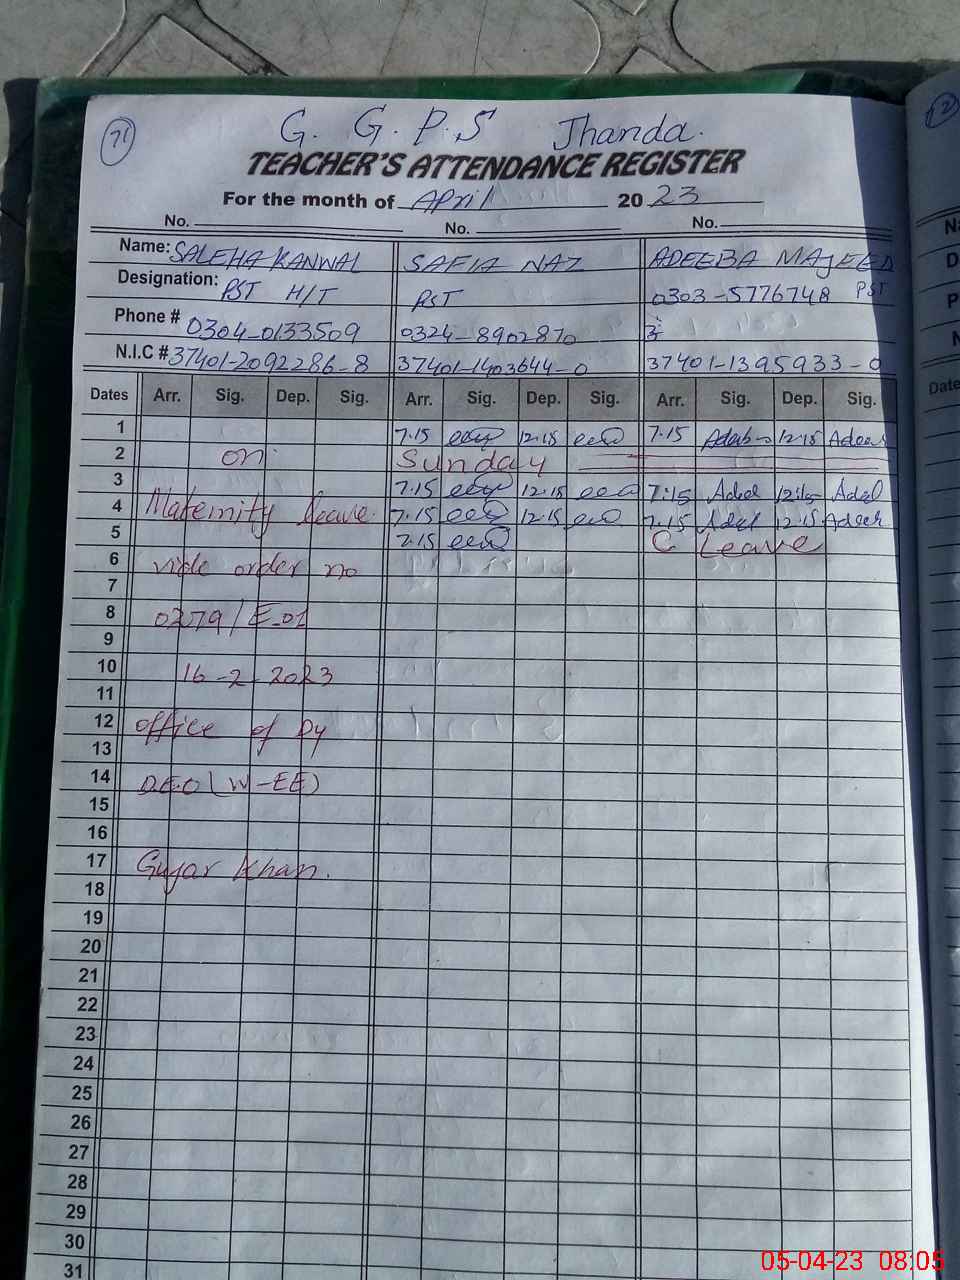 71
G. G. P. S Jhanda.
TEACHER'S ATTENDANCE REGISTER
For the month of April 2023
No. No. No.
Name: SALEHA KANWAL SAFIA NAZ ADEEBA MAJEED
Designation: PST H/T PST 0303-5776748 PST
Phone # 0304-0133509 0324-8902870
N.I.C # 37401-2092286-8 37401-1403644-0 37401-1395933-0
Dates Arr. Sig. Dep. Sig. Arr. Sig. Dep. Sig. Arr. Sig. Dep. Sig.
1 7.15 12.15 7.15 12.15
2 on Sunday
3 7.15 12.15 7:15 12:15
4 Maternity leave. 7.15 12.15 7.15 12.15
5 7.15 C leave
6 vide order no
7
8 0279/E-01
9
10 16-2-2023
11
12 office of Dy
13
14 D.E.O (W-EE)
15
16
17 Gujar Khan.
18
19
20
21
22
23
24
25
26
27
28
29
30
31
05-04-23 08:05